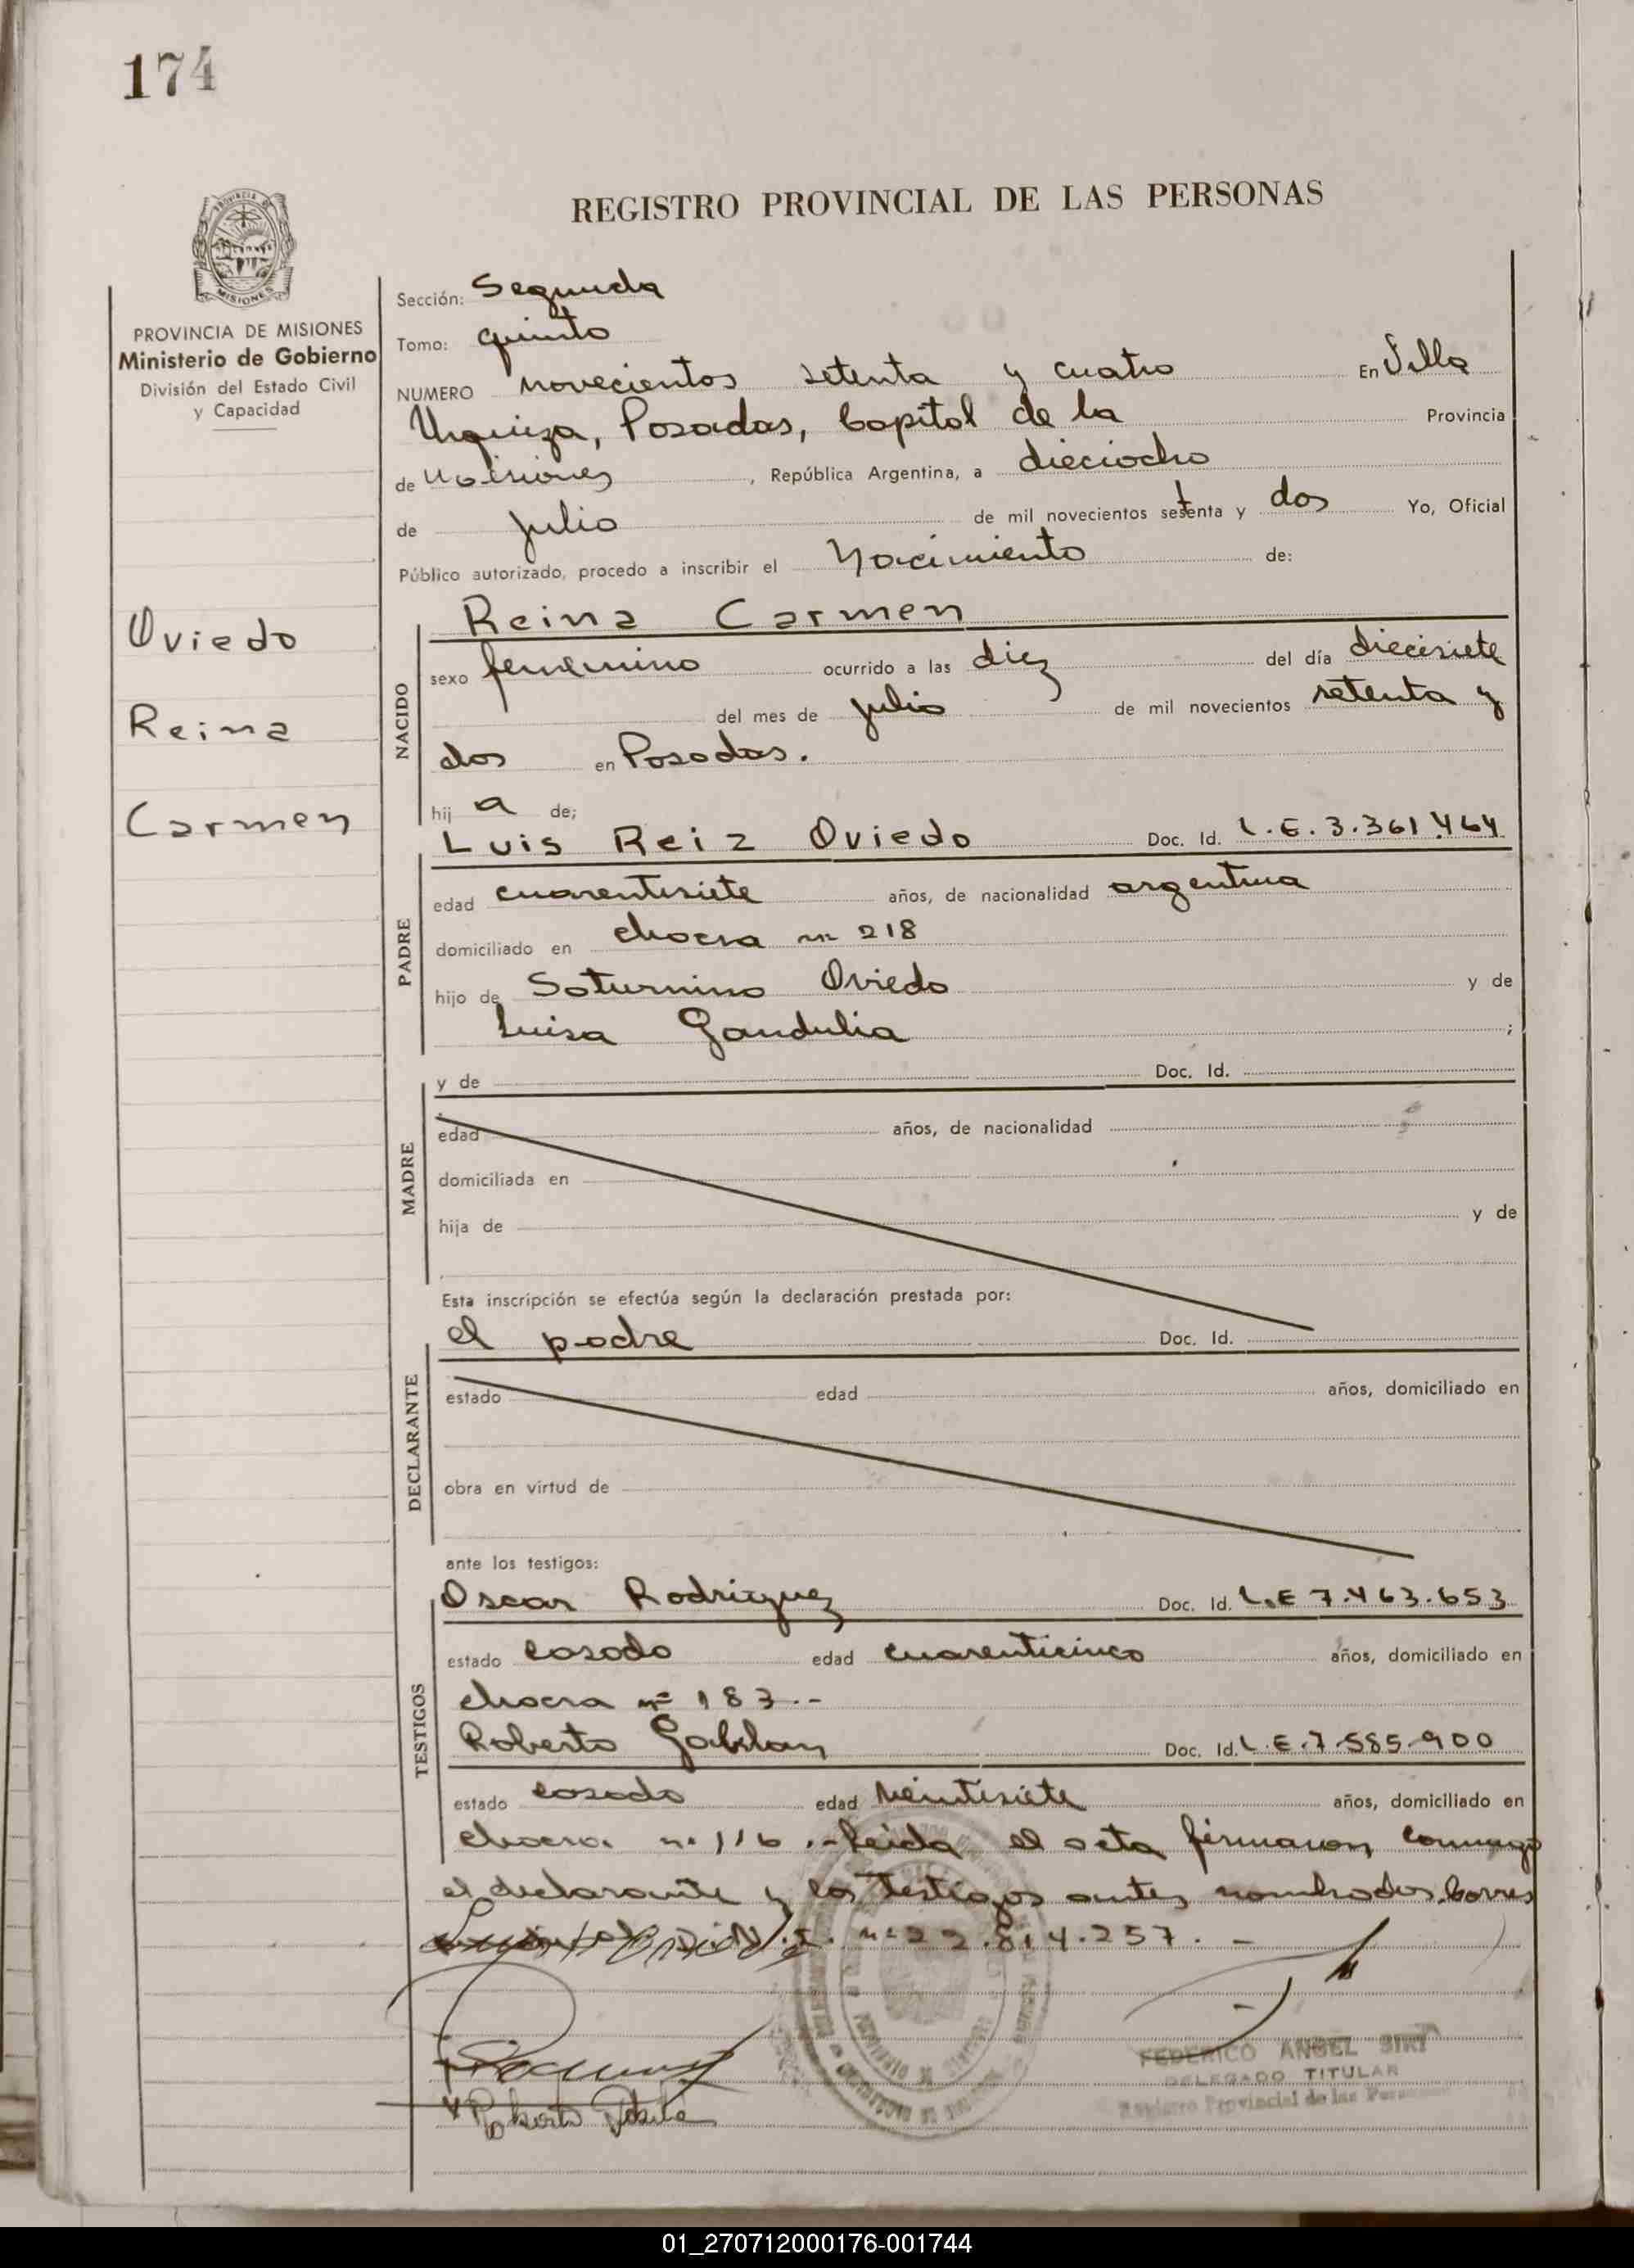 174
REGISTRO PROVINCIAL DE LAS PERSONAS
MISIONES
PROVINCIA DE MISIONES
Ministerio de Gobierno
División del Estado Civil
y Capacidad
Sección: Segunda
Tomo: quinto
NUMERO novecientos setenta y cuatro En Villa
Urquiza, Posadas, Capital de la Provincia
de Misiones, República Argentina, a dieciocho
de julio de mil novecientos setenta y dos Yo, Oficial
Público autorizado, procedo a inscribir el Nacimiento de:
Oviedo
Reina
Carmen
NACIDO
Reina Carmen
sexo femenino ocurrido a las diez del día diecisiete
del mes de julio de mil novecientos setenta y
dos en Posadas.
hij a de;
PADRE
Luis Reiz Oviedo Doc. Id. L.E. 3.361.464
edad cuarentisiete años, de nacionalidad argentina
domiciliado en chacra nº 218
hijo de Saturnino Oviedo y de
Luisa Gandulia ;
MADRE
y de Doc. Id.
edad años, de nacionalidad
domiciliada en
hija de y de
Esta inscripción se efectúa según la declaración prestada por:
DECLARANTE
el padre Doc. Id.
estado edad años, domiciliado en
obra en virtud de
ante los testigos:
TESTIGOS
Oscar Rodriguez Doc. Id. L.E 7.463.653
estado casado edad cuarenticinco años, domiciliado en
chacra nº 183.-
Roberto Doc. Id. L.E. 7.585.900
estado casado edad veintisiete años, domiciliado en
chacra nº 116.- Leida el acta firmaron conmigo
el declarante y los testigos antes nombrados. Corres
D.I. nº 22.814.257.-
FEDERICO ANGEL SIRI
DELEGADO TITULAR
Registro Provincial de las Personas
01_270712000176-001744